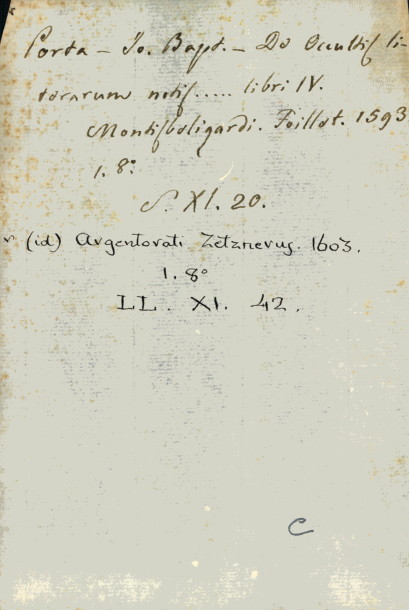 Porta - Jo. Bapt. - De Occultis li-
terarum notis..... libri IV.
Montisbeligardi. Foillet. 1593
1. 8º
S. XI. 20.
(id) Argentorati Zetznerus. 1603.
1. 8º
LL. XI. 42.
C